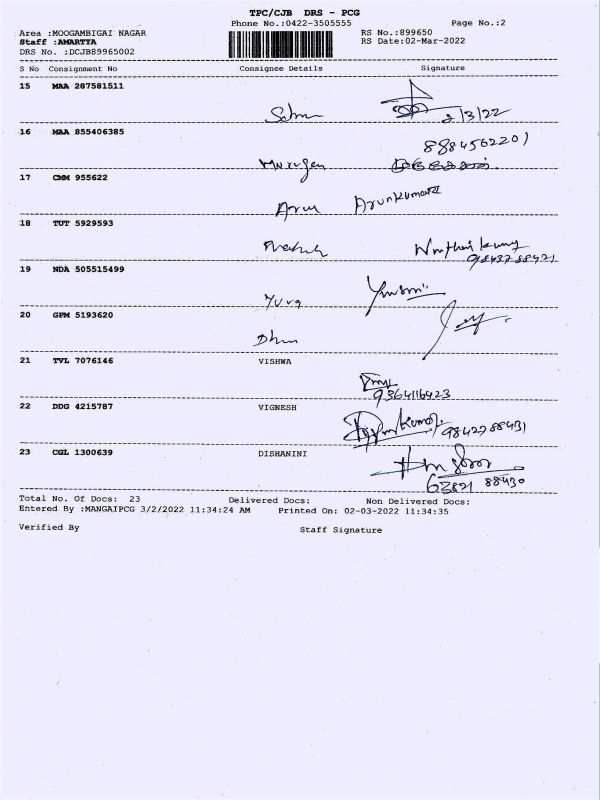 TPC/CJB DRS - PCG
Phone No.:0422-3505555 Page No.:2
Area :MOOGAMBIGAI NAGAR RS No.:899650
Staff :AMARTYA RS Date:02-Mar-2022
DRS No. :DCJB89965002
S No Consignment No Consignee Details Signature
15 MAA 287581511
2/3/22
16 MAA 855406385
8884562201
Murugan
17 CMM 955622
Arun Arunkumar
18 TUT 5929593
19 NDA 505515499
Yuva
20 GPM 5193620
21 TVL 7076146 VISHWA
9364116423
22 DDG 4215787 VIGNESH
9842788431
23 CGL 1300639 DISHANINI
63821 88430
Total No. Of Docs: 23 Delivered Docs: Non Delivered Docs:
Entered By :MANGAIPCG 3/2/2022 11:34:24 AM Printed On: 02-03-2022 11:34:35
Verified By Staff Signature